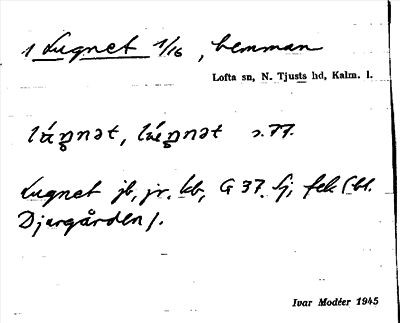 1 Lugnet 1/16, hemman
Lofta sn, N. Tjusts hd, Kalm. l.
s. 77.
Lugnet jb, jr, kb, G 37. fj, fek (bl.
Djurgården).
Ivar Modéer 1945